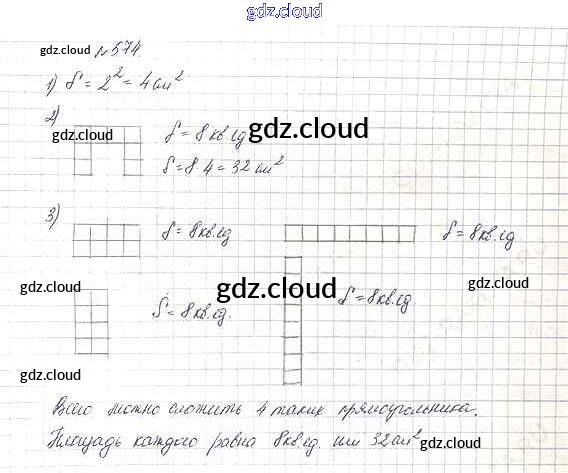 gdz.cloud
gdz.cloud №574
1) S = 2² = 4 см²
2)
gdz.cloud S = 8 кв.ед gdz.cloud
S = 8·4 = 32 см²
3)
S = 8 кв.ед S = 8 кв.ед
gdz.cloud S = 8 кв.ед. gdz.cloud S = 8 кв.ед
gdz.cloud
Всего можно сложить 4 таких прямоугольника.
Площадь каждого равна 8 кв.ед. или 32 см² gdz.cloud